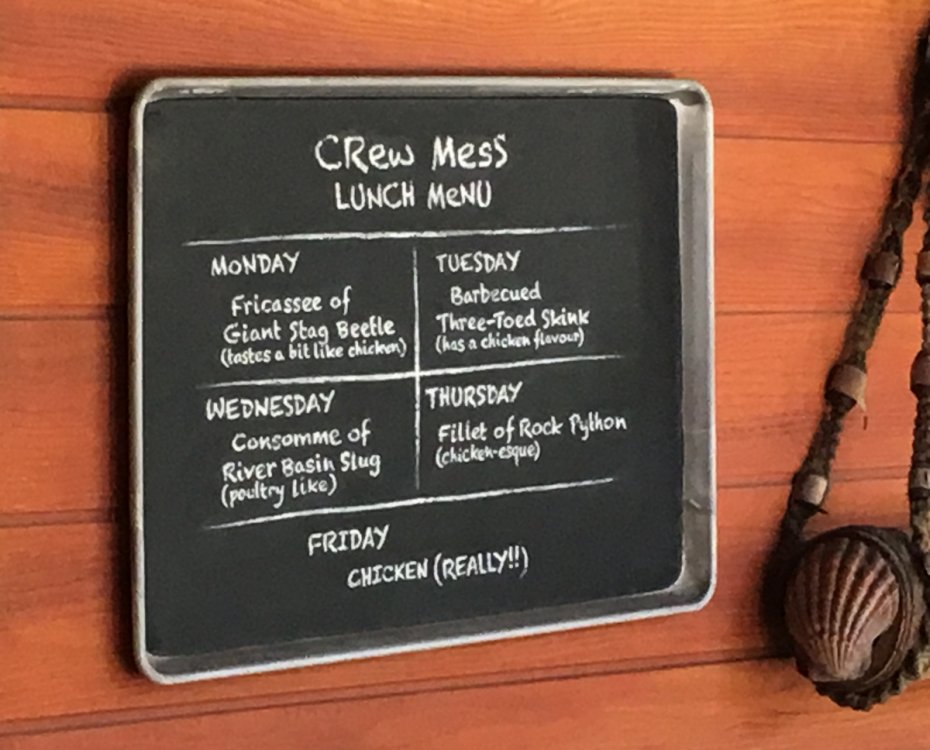 CRew MesS
LUNCH MeNU
MONDAY
Fricassee of
Giant Stag Beetle
(tastes a bit like chicken)
TUESDAY
Barbecued
Three-Toed Skink
(has a chicken flavour)
WEDNESDAY
Consomme of
River Basin Slug
(poultry like)
THURSDAY
Fillet of Rock Python
(chicken-esque)
FRIDAY
CHICKEN (REALLY!!)